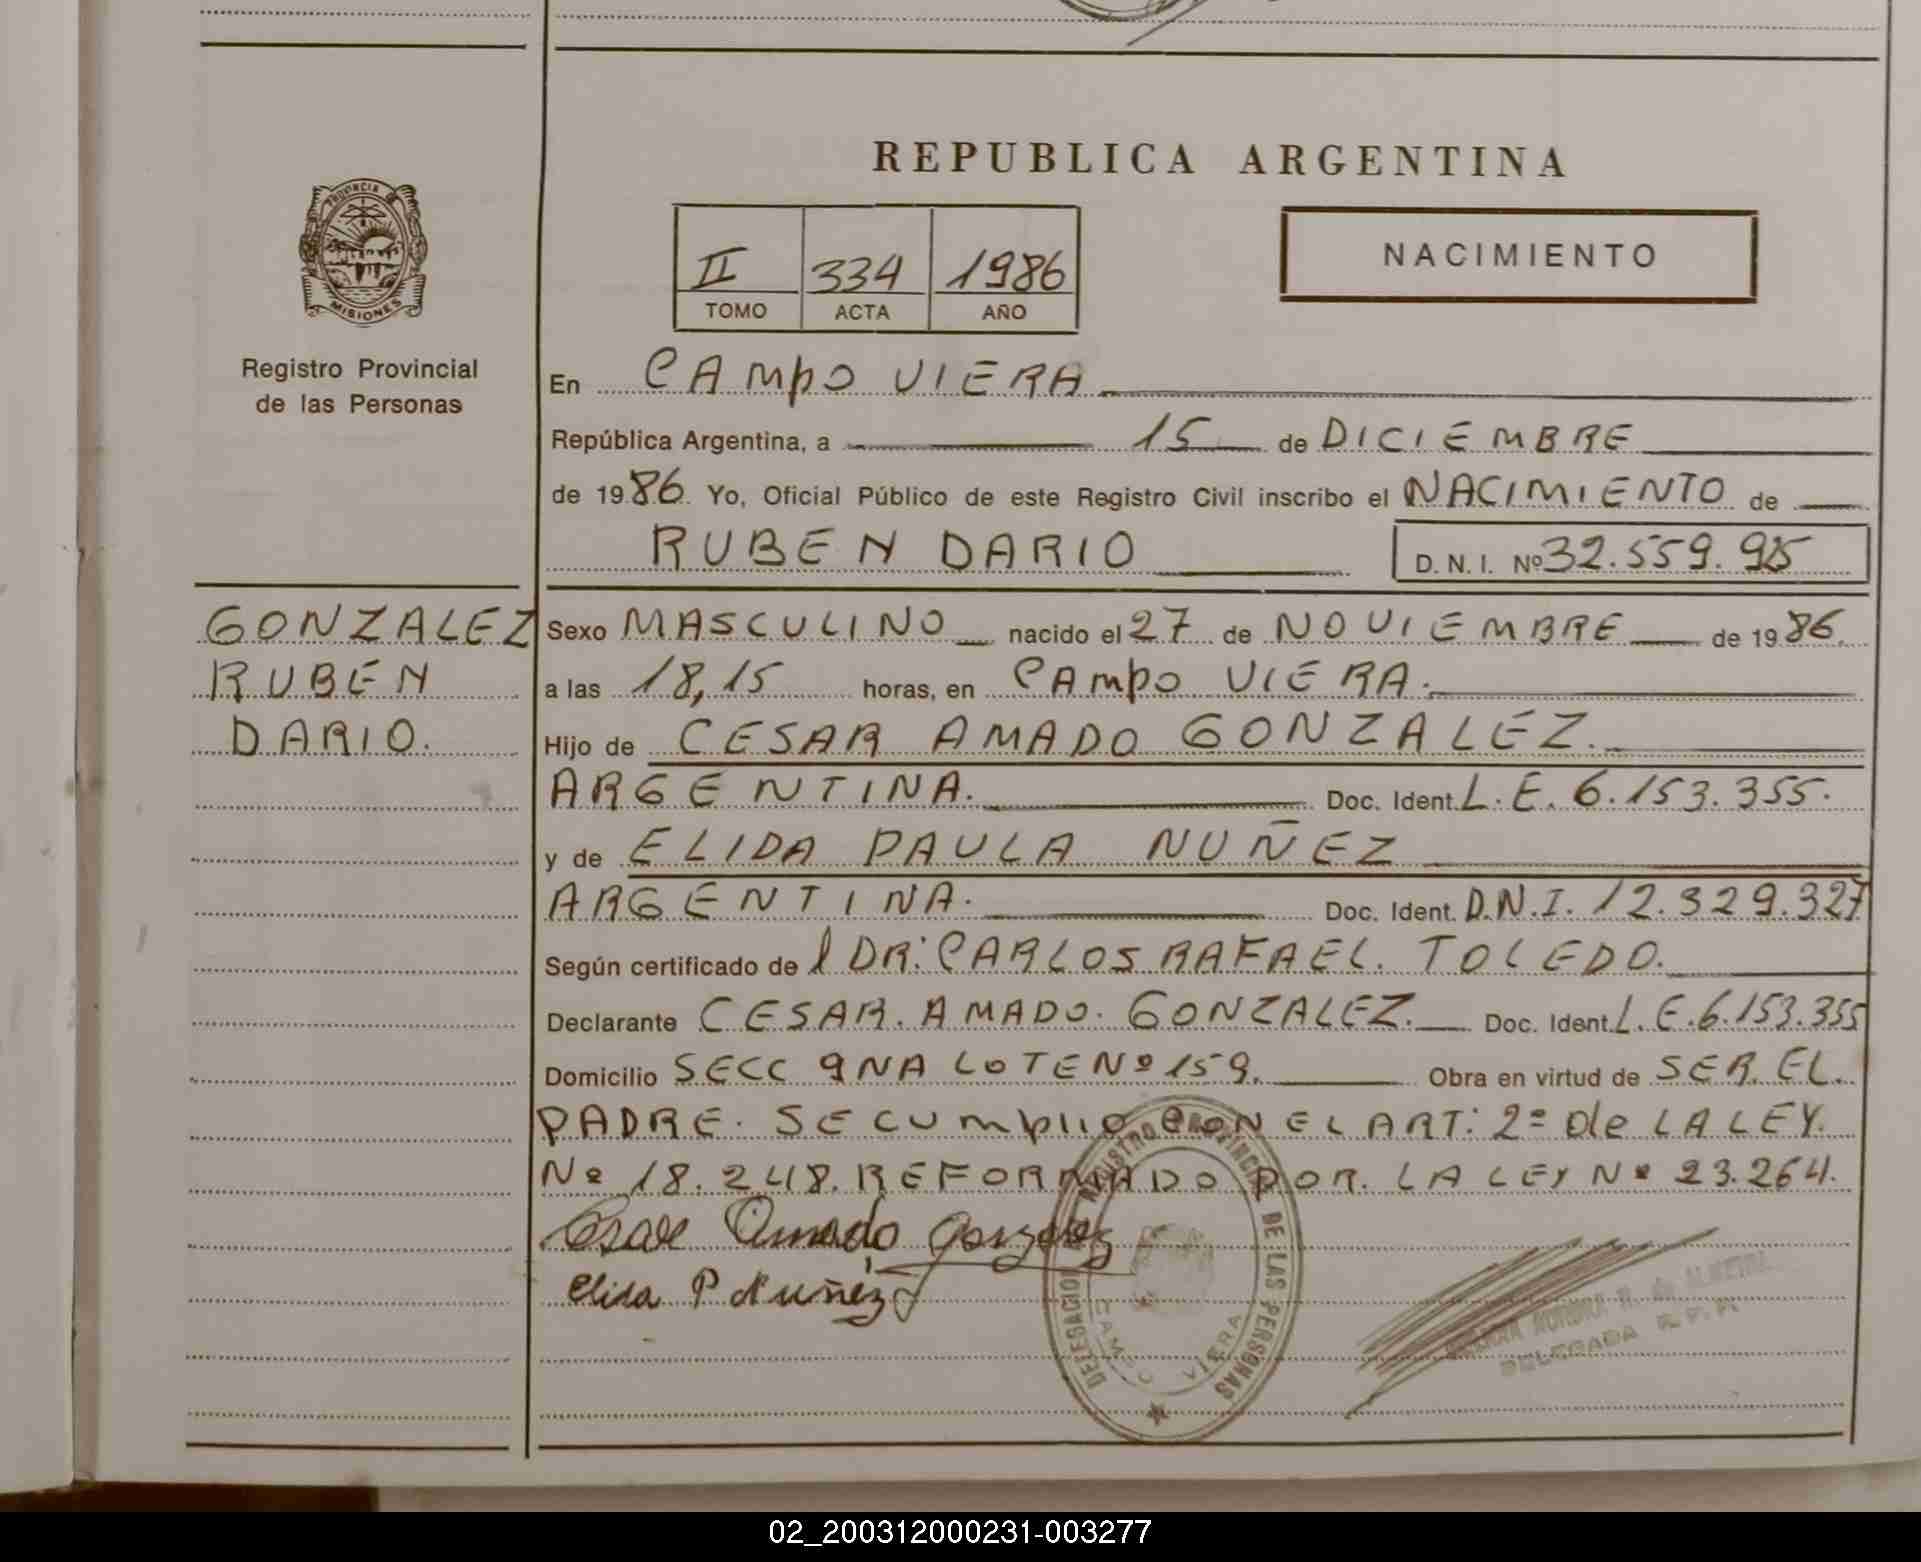 REPUBLICA ARGENTINA
PROVINCIA DE
MISIONES
Registro Provincial
de las Personas
II 334 1986
TOMO ACTA AÑO
NACIMIENTO
En CAMPO VIERA
República Argentina, a 15 de DICIEMBRE
de 1986. Yo, Oficial Público de este Registro Civil inscribo el NACIMIENTO de
RUBEN DARIO D. N. I. Nº 32.559.985
GONZALEZ
RUBEN
DARIO.
Sexo MASCULINO nacido el 27 de NOVIEMBRE de 1986.
a las 18,15 horas, en CAMPO VIERA.
Hijo de CESAR AMADO GONZALEZ.
ARGENTINA. Doc. Ident. L.E. 6.153.355.
y de ELIDA PAULA NUÑEZ
ARGENTINA. Doc. Ident. D.N.I. 12.329.327
Según certificado de l DR: CARLOS RAFAEL. TOLEDO.
Declarante CESAR. AMADO. GONZALEZ. Doc. Ident. L.E. 6.153.355
Domicilio SECC 9NA LOTE Nº 159. Obra en virtud de SER EL
PADRE. SE CUMPLIO CON EL ART: 2º de LA LEY.
Nº 18.248. REFORMADO POR. LA LEY Nº 23.264.
Cesar Amado Gonzalez
Elida P Nuñez
DELEGACION REGISTRO PROVINCIAL DE LAS PERSONAS
CAMPO VIERA
NORMA
DELEGADA R. P. P.
02_200312000231-003277